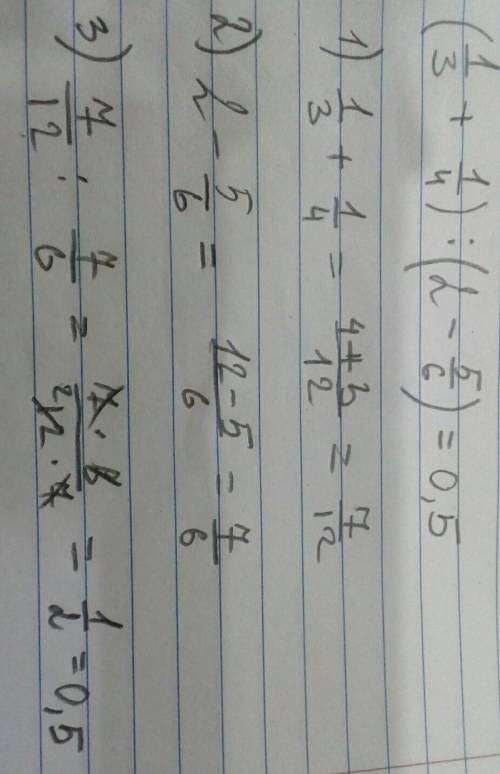 (1/3 + 1/4) : (2 - 5/6) = 0,5
1) 1/3 + 1/4 = (4+3)/12 = 7/12
2) 2 - 5/6 = (12-5)/6 = 7/6
3) 7/12 : 7/6 = (7·6)/(2 12·7) = 1/2 = 0,5